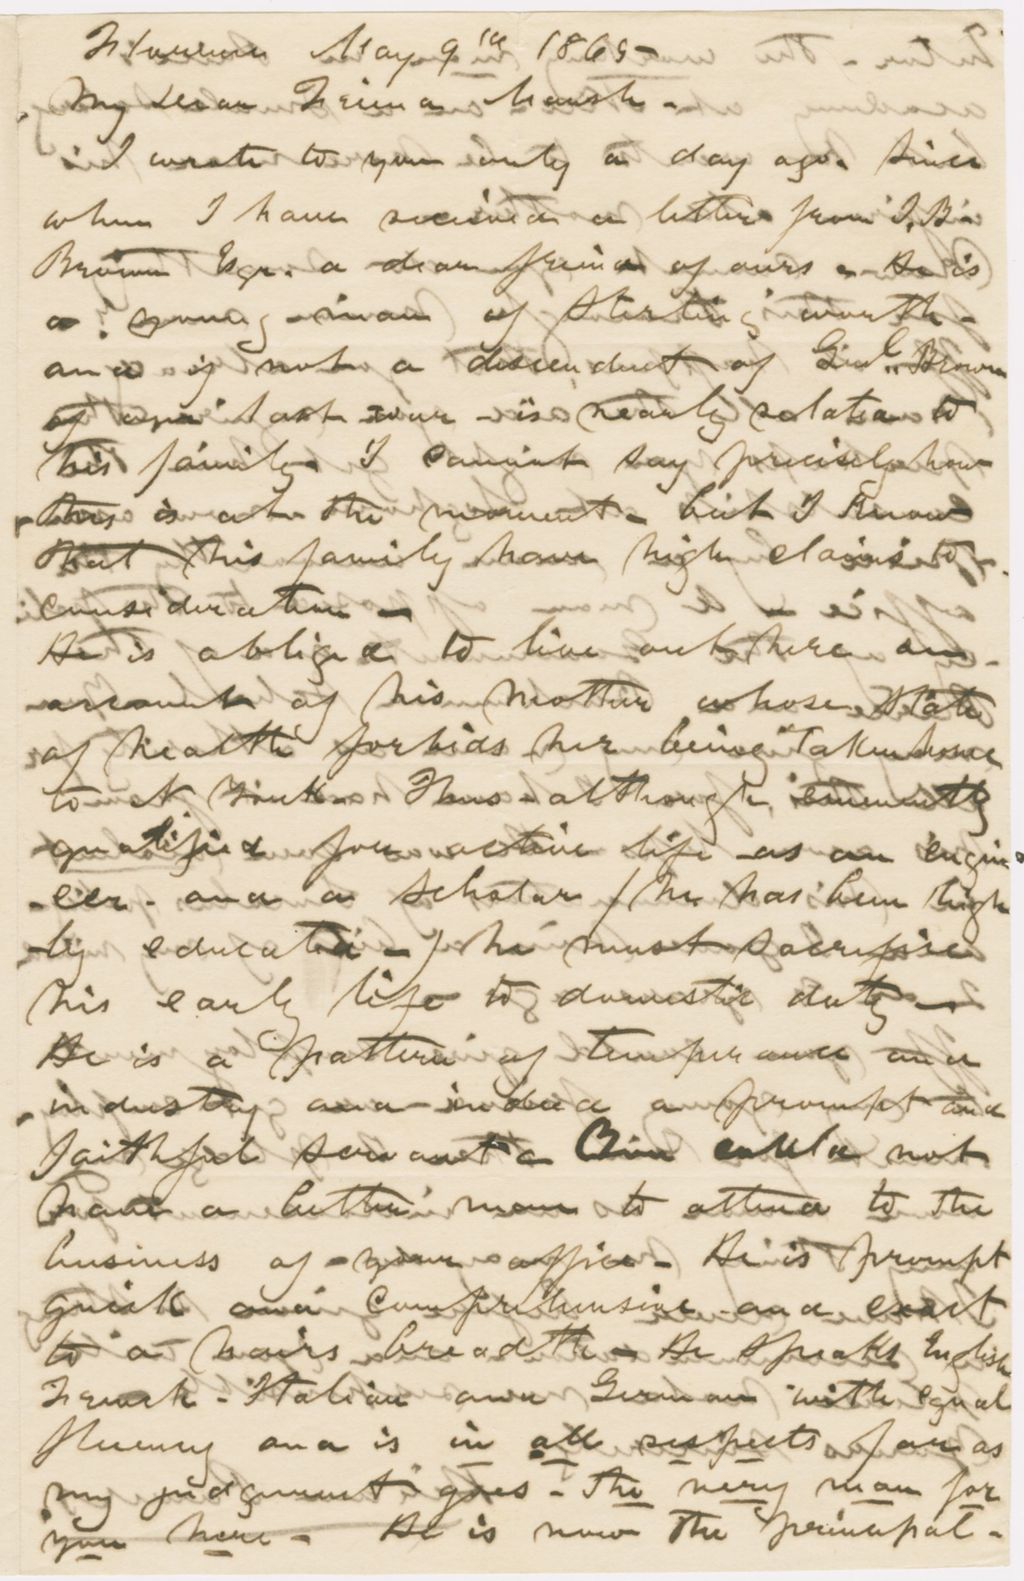 Florence May 9th 1865
My dear Friend Marsh -
I wrote to you only a day ago. Since
when I have received a letter from J. B.
Brown Esqr. a dear friend of ours - He is
a young man of sterling worth -
and if not a descendent of Genl. Brown
of our last war - is nearly related to
his family. I cannot say precisely how
this is at the moment - but I know
that his family have high claims to
consideration -
He is obliged to live out here on
account of his mother whose state
of health forbids her being taken home
to N York. Thus - although eminently
qualified for active life as an engin
-eer - and a scholar / he has been high
-ly educated - / he must sacrifise
his early life to domestic duty -
He is a pattern of temperance and
industry and indeed a prompt and
faithful servant could not
have a better man to attend to the
business of your office - He is prompt
quick and comprehensive and exact
to a hairs breadth - He speaks English
French - Italian and German with equal
fluency and is in all respects far as
my judgment goes - the very man for
you here - He is now the principal -